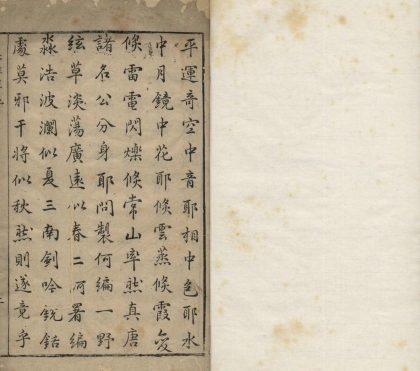 平運奇空中音耶相中色耶水
中月鏡中花耶倏雲蒸倏霞変
倏雷電閃爍倏常山率然真唐
諸名公分身耶問製何編一野
絃草淡蕩廣遠似春二河署編
淼浩波瀾似夏三南剣吟銳鋩
處莫邪干将似秋然則遂竟乎